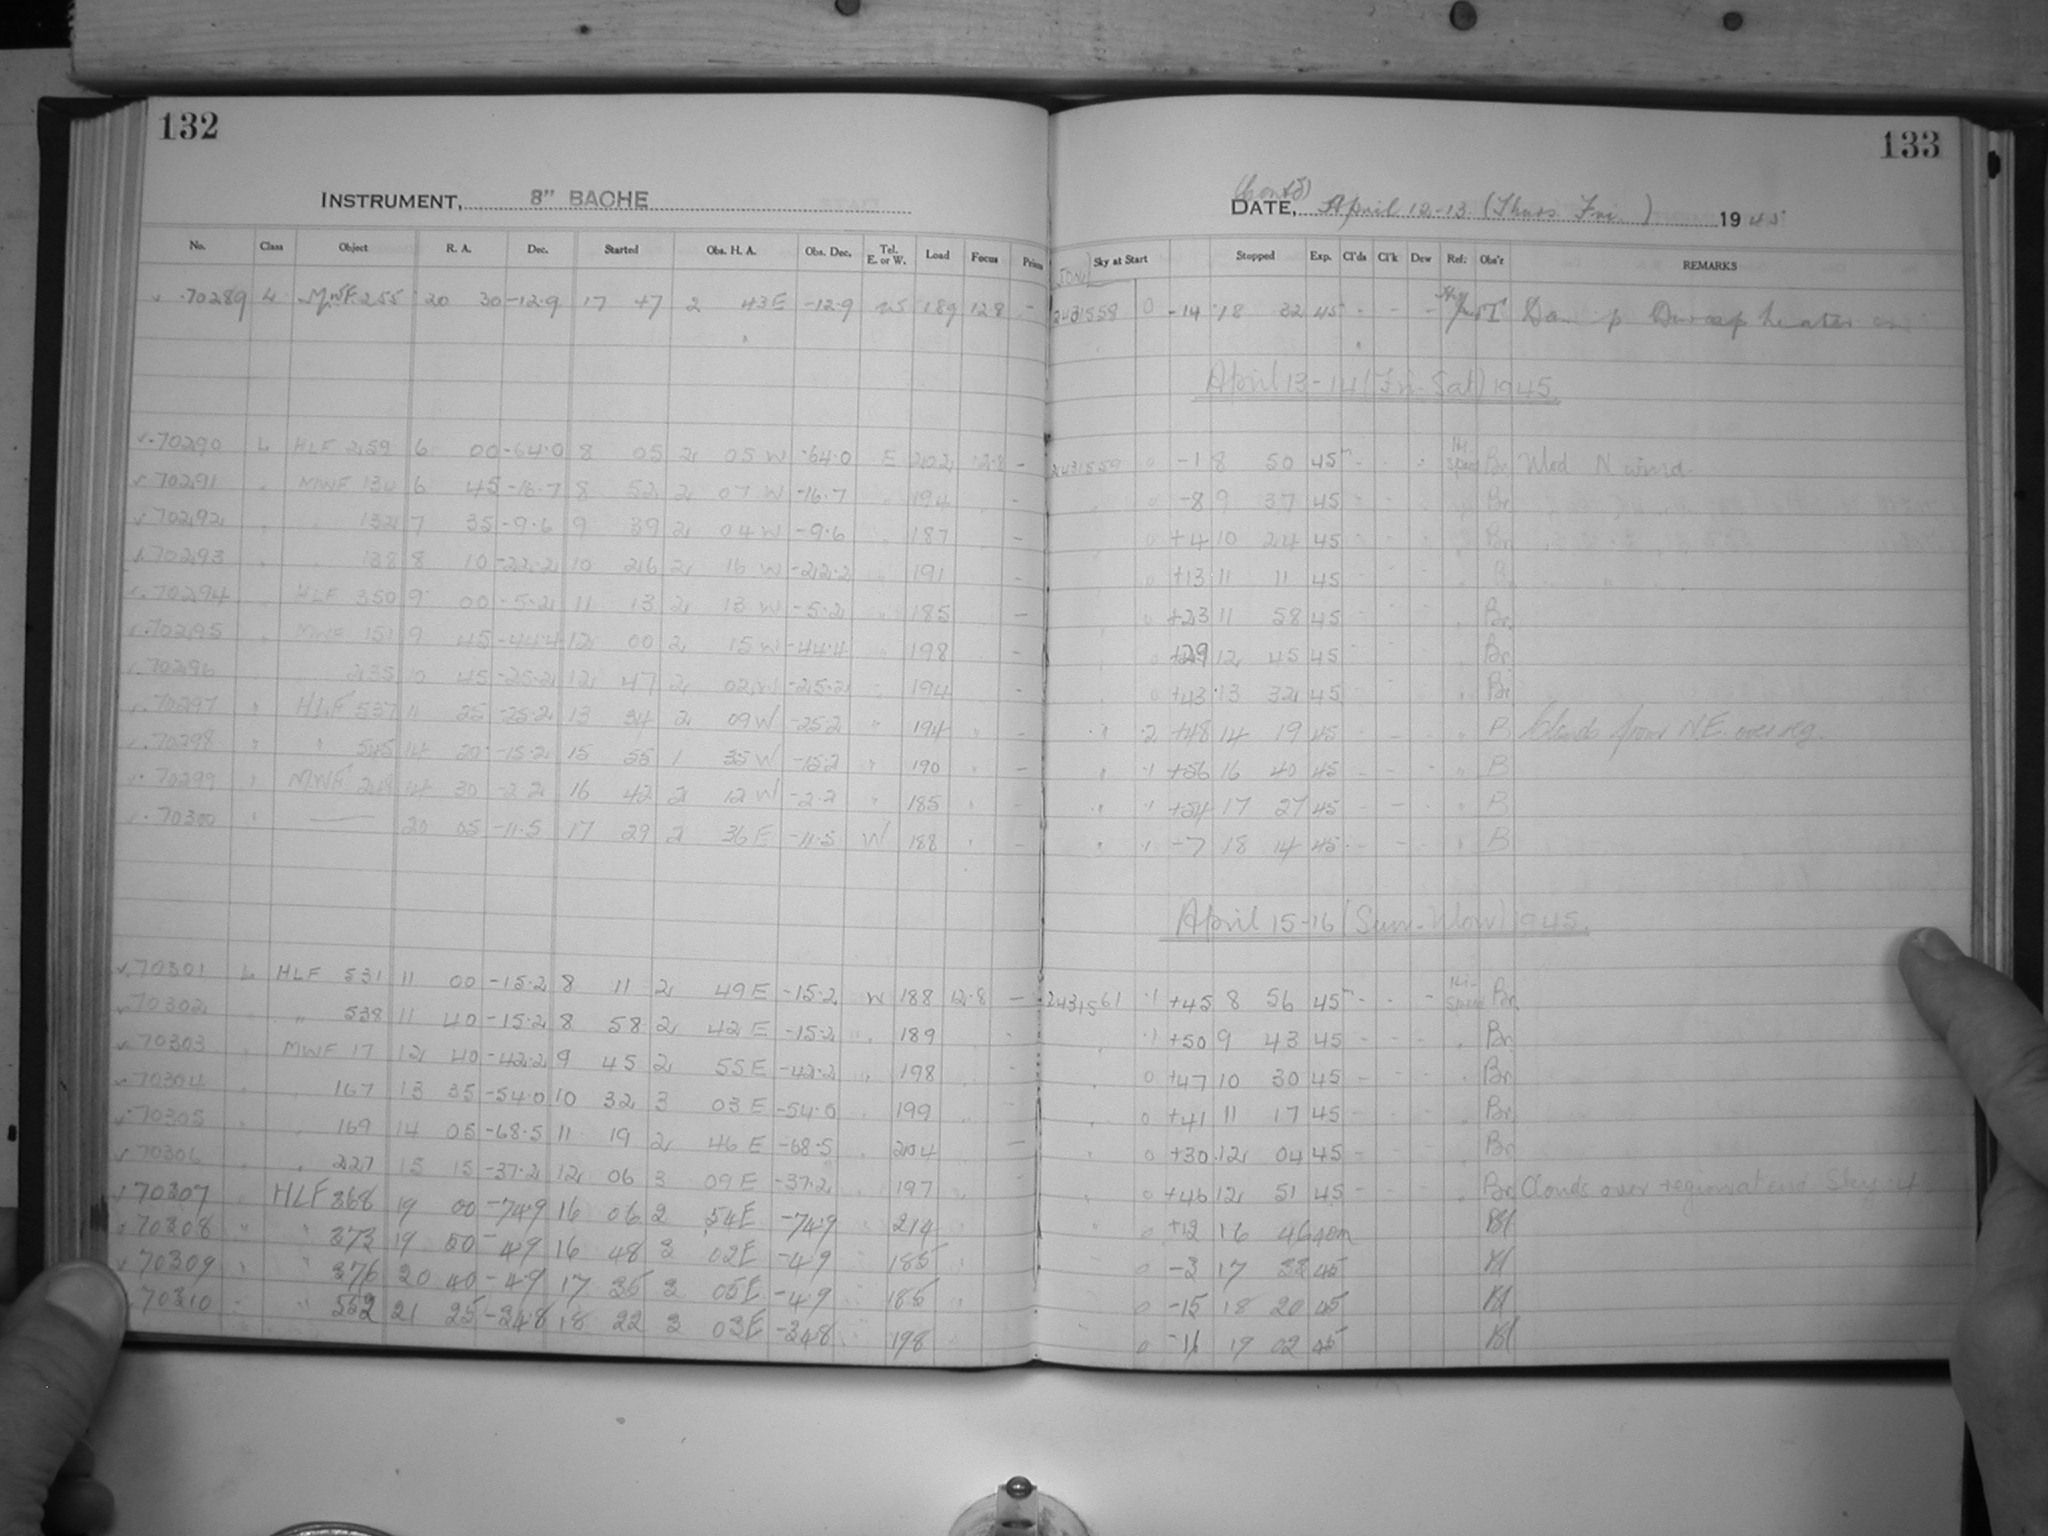 132
133
INSTRUMENT, 8" BACHE
(Contd)
DATE, April 12-13 (Thurs Fri.) 1945
No. Class Object R. A. Dec. Started Obs. H. A. Obs. Dec. Tel. E. or W. Load Focus Prism Sky at Start Stopped Exp. Cl'ds Cl'k Dew Ref: Obs'r REMARKS
70289 L MWF 255 20 30 -12.9 17 47 2 43 E -12.9 W 189 12.8 - 2431558 0 -14 18 32 45 - - - Damp Dewcap heater on
April 13-14 (Fri-Sat) 1945.
70290 L HLF 259 6 00 -64.0 8 05 2 05 W -64.0 E 202 12.8 - 2431559 0 -1 8 50 45m - - - Hi-speed Br. Mod N wind
70291 " MWF 134 6 45 -16.7 8 52 2 07 W -16.7 " 194 - 0 -8 9 37 45 Br.
70292 " 132 7 35 -9.6 9 39 2 04 W -9.6 " 187 - 0 +4 10 24 45 Br.
70293 " 138 8 10 -22.2 10 26 2 16 W -22.2 " 191 - 0 +13 11 11 45
70294 HLF 350 9 00 -5.2 11 13 2 13 W -5.2 " 185 - 0 +23 11 58 45 Br.
70295 MWF 151 9 45 -44.4 12 00 2 15 W -44.4 " 198 - 0 +29 12 45 45 Br.
70296 " 235 10 45 -25.2 12 47 2 02 W -25.2 " 194 - 0 +43 13 32 45 Br
70297 " HLF 537 11 25 -25.2 13 34 2 09 W -25.2 " 194 " - " .2 +48 14 19 45 - - - " B Clouds from N.E. over reg.
70298 " " 545 14 20 -15.2 15 55 1 35 W -15.2 " 190 " - " .1 +56 16 40 45 - - - " B
70299 " MWF 248 14 30 -2.2 16 42 2 12 W -2.2 " 185 " - " .1 +54 17 27 45 - - - " B
70300 " — 20 05 -11.5 17 29 2 36 E -11.5 W 188 " - " .1 -7 18 14 45 - - - " B
April 15-16 (Sun-Mon) 1945.
70301 L HLF 531 11 00 -15.2 8 11 2 49 E -15.2 W 188 12.8 - 2431561 .1 +45 8 56 45m - - - Hi-speed Br.
70302 " 538 11 40 -15.2 8 58 2 42 E -15.2 " 189 - .1 +50 9 43 45 - - - Br.
70303 MWF 17 12 40 -42.2 9 45 2 55 E -42.2 " 198 - 0 +47 10 30 45 - - - Br.
70304 167 13 35 -54.0 10 32 3 03 E -54.0 199 - 0 +41 11 17 45 - - - Br.
70305 169 14 05 -68.5 11 19 2 46 E -68.5 204 - 0 +30 12 04 45 - - - Br.
70306 227 15 15 -37.2 12 06 3 09 E -37.2 197 - 0 +46 12 51 45 - - - Br. Clouds over region at end Sky .4
70307 HLF 368 19 00 -74.9 16 06 2 54 E -74.9 " 214 0 +12 16 46 40m
70308 " " 373 19 50 -4.9 16 48 3 02 E -4.9 185 0 -3 17 33 45
70309 " " 376 20 40 -4.9 17 35 3 05 E -4.9 185 0 -15 18 20 45
70310 " " 552 21 25 -34.8 18 22 3 03 E -34.8 198 0 19 02